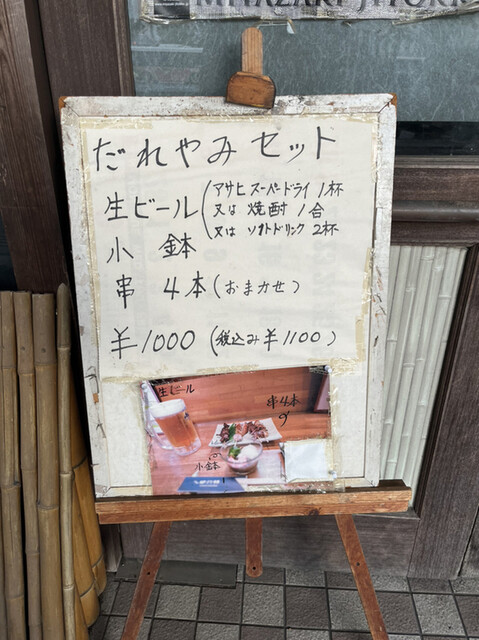 MIYAZAKI JITOKK
だれやみセット
生ビール(アサヒ スーパードライ 1杯
又は 焼酎 1合
又は ソフトドリンク 2杯
小鉢
串 4本(おまかせ)
¥1000(税込み¥1100)
生ビール
串4本
小鉢